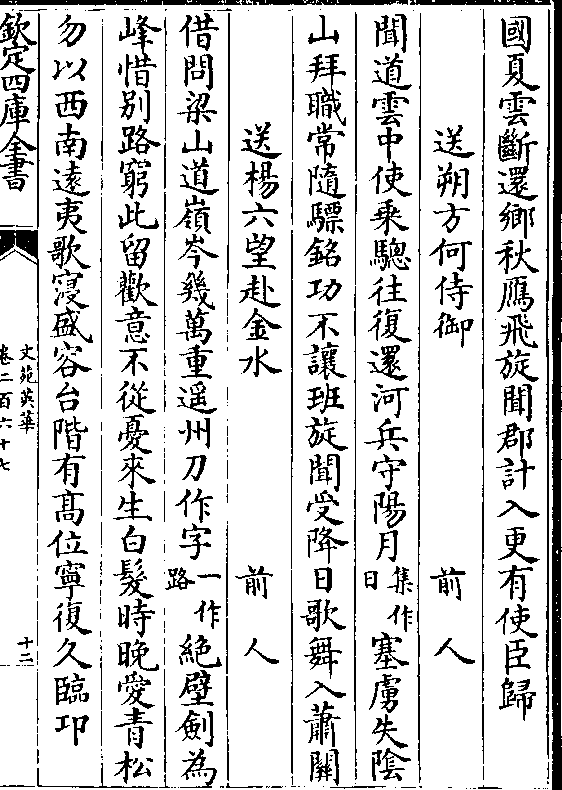 國夏雲斷還鄉秋鴈飛旋聞郡計入更有使臣歸
送朔方何侍御　前人
聞道雲中使乗驄往復還河兵守陽月集作日塞虜失陰
山拜職常隨驃銘功不讓班旋聞受降日歌舞入蕭關
送楊六望赴金水　前人
借問梁山道嶺岑幾萬重遥州刀作字一作路絶壁劍為
峰惜别路窮此留歡意不從憂來生白髮時晚愛青松
勿以西南逺夷歌寖盛容台階有髙位寧復久臨卭
欽定四庫全書
文苑英華
卷二百六十七
十二